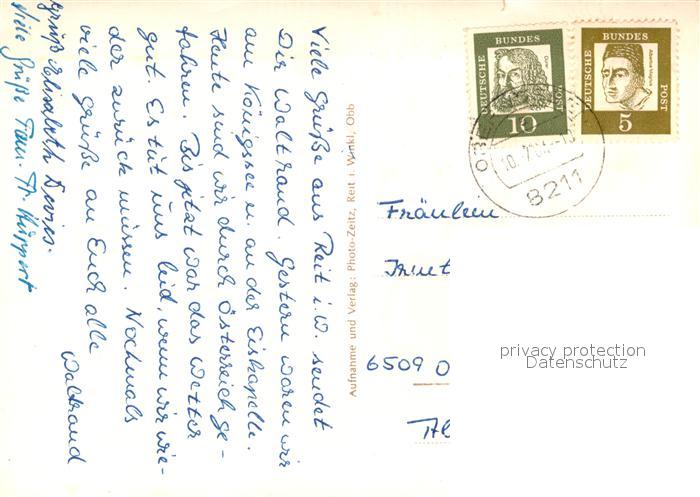 Viele Grüße aus Reit i.W. sendet
Dir Waltraud. Gestern waren wir
am Königssee u. an der Eiskapelle.
Heute sind wir durch Österreich ge-
fahren. Bis jetzt war das Wetter
gut. Es tut uns leid, wenn wir wie-
der zurück müssen. Nochmals
viele Grüße an Euch alle
Waltraud
Gruß Elisabeth
Viele Grüße Fam.
Aufnahme und Verlag: Photo-Zeitz, Reit i. Winkl, Obb
DEUTSCHE BUNDES POST
Dürer
10
DEUTSCHE BUNDES POST
Albertus Magnus
5
8211
Fräulein
6509 O
privacy protection
Datenschutz